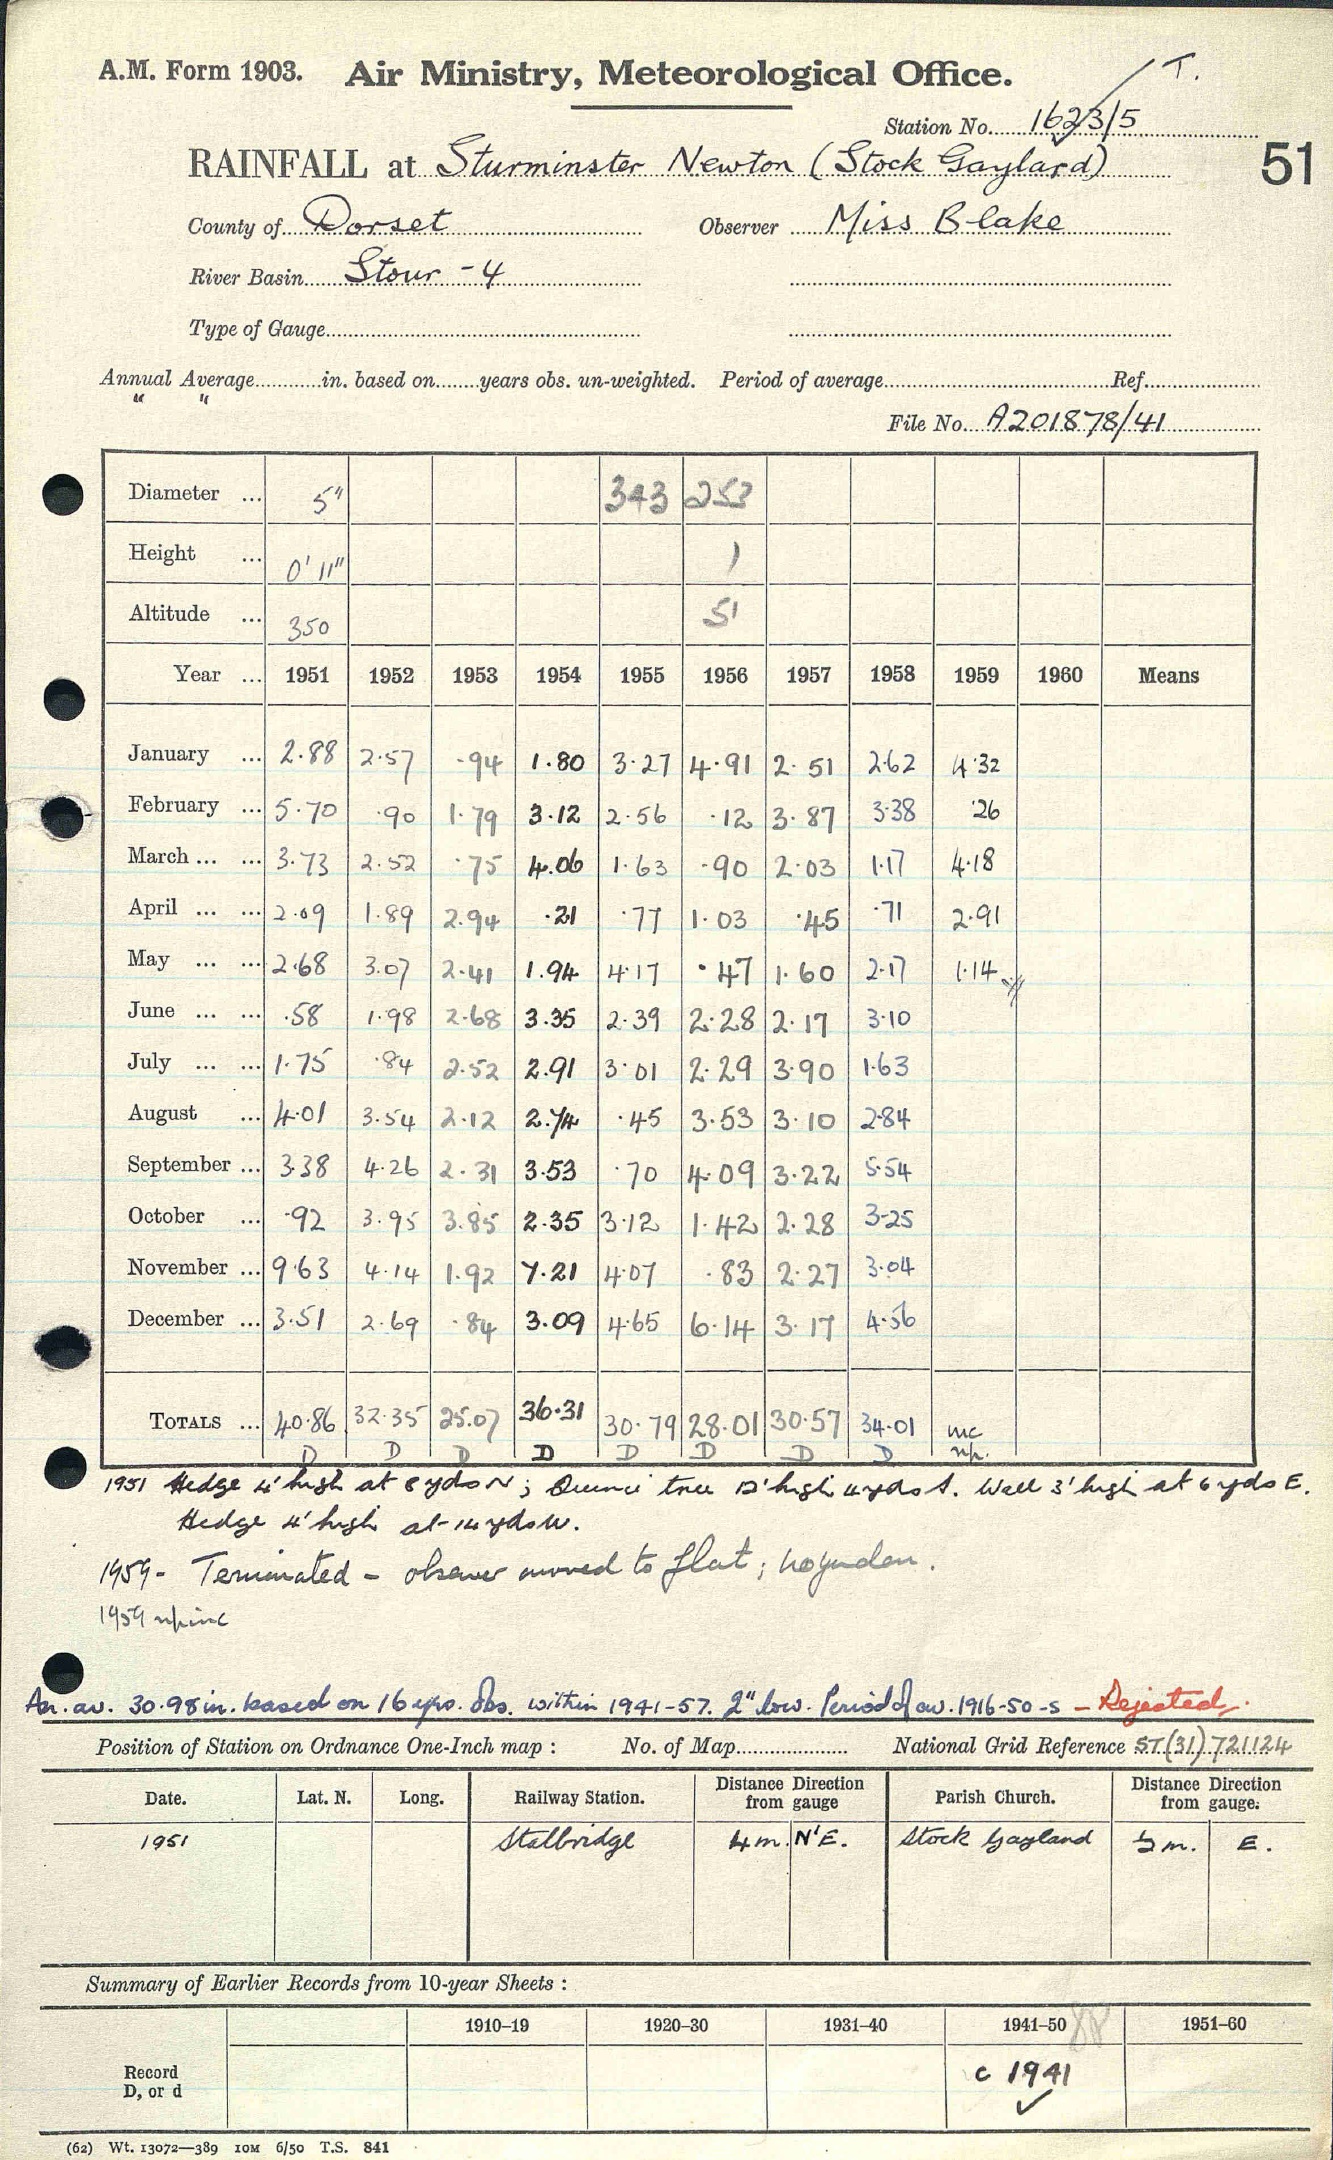 A.M. Form 1903. Air Ministry, Meteorological Office. T.
Station No. 1623/5
RAINFALL at Sturminster Newton (Stock Gaylard) 51
County of Dorset Observer Miss Blake
River Basin Stour - 4
Type of Gauge
Annual Average in. based on years obs. un-weighted. Period of average Ref.
" "
File No. A201878/41
Diameter ... 5" 343 253
Height ... 0' 11" 1
Altitude ... 350 51
Year ... 1951 1952 1953 1954 1955 1956 1957 1958 1959 1960 Means
January ... 2.88 2.57 .94 1.80 3.27 4.91 2.51 2.62 4.32
February ... 5.70 .90 1.79 3.12 2.56 .12 3.87 3.38 .26
March ... ... 3.73 2.52 .75 4.06 1.63 .90 2.03 1.17 4.18
April ... ... 2.09 1.89 2.94 .21 .77 1.03 .45 .71 2.91
May ... ... 2.68 3.07 2.41 1.94 4.17 .47 1.60 2.17 1.14
June ... ... .58 1.98 2.68 3.35 2.39 2.28 2.17 3.10
July ... ... 1.75 .84 2.52 2.91 3.01 2.29 3.90 1.63
August ... 4.01 3.54 2.12 2.74 .45 3.53 3.10 2.84
September ... 3.38 4.26 2.31 3.53 .70 4.09 3.22 5.54
October ... .92 3.95 3.85 2.35 3.12 1.42 2.28 3.25
November ... 9.63 4.14 1.92 7.21 4.07 .83 2.27 3.04
December ... 3.51 2.69 .84 3.09 4.65 6.14 3.17 4.56
TOTALS ... 40.86 32.35 25.07 36.31 30.79 28.01 30.57 34.01 inc
D D D D D D D D np.
1951 Hedge 4' high at 8 yds N; Quince tree 12' high 4 yds S. Wall 3' high at 6 yds E.
Hedge 4' high at 14 yds W.
1959 - Terminated - observer moved to flat; no garden.
1959 np inc
An. av. 30.98 in. based on 16 yrs. obs. within 1941-57. 2" low. Period of av. 1916-50 -s - Rejected.
Position of Station on Ordnance One-Inch map : No. of Map National Grid Reference ST(31)721124
Date. Lat. N. Long. Railway Station. Distance Direction from gauge Parish Church. Distance Direction from gauge.
1951 Stalbridge 4 m. N'E. Stock Gayland ½ m. E.
Summary of Earlier Records from 10-year Sheets :
1910–19 1920–30 1931–40 1941–50 1951–60
Record
D, or d
c 1941
(62) Wt. 13072—389 10M 6/50 T.S. 841